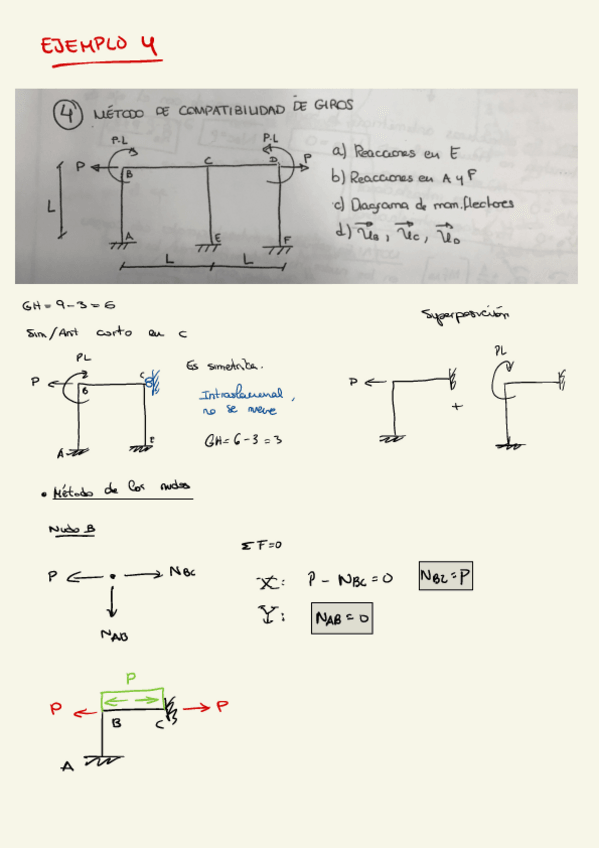 EJEMPLO 4
4 MÉTODO DE COMPATIBILIDAD DE GIROS
P·L P·L
P B C D P
L
A E F
L L
a) Reacciones en E
b) Reacciones en A y F
c) Diagrama de mom. flectores
d) u_B, u_C, u_D
GH = 9-3 = 6
Sim/Ant corto en C
Superposición
PL
P B C
A E
Es simetrica.
Intraslacional,
no se mueve
GH = 6-3 = 3
P
+
PL
• Método de los nudos
Nudo B
P N_BC
N_AB
ΣF=0
X: P - N_BC = 0 N_BC = P
Y: N_AB = 0
P
P B C P
A